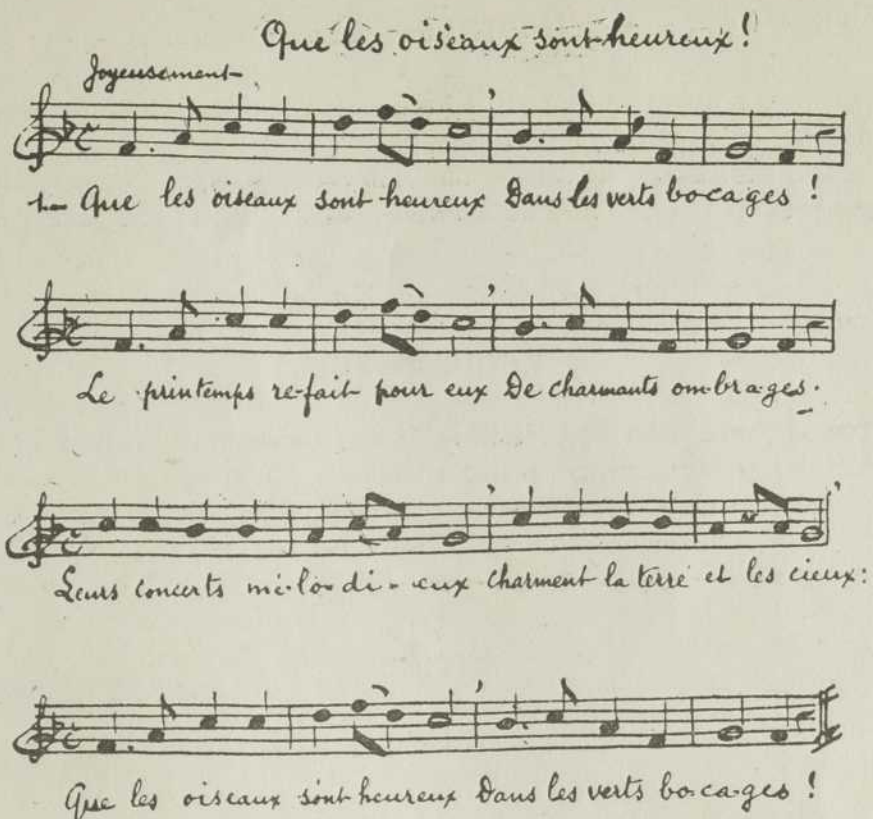 Que les oiseaux sont heureux !
Joyeusement
1- Que les oiseaux sont heureux Dans les verts bo-ca-ges !
Le printemps re-fait pour eux De charmants om-bra-ges.
Leurs concerts mé-lo-di-eux charment la terre et les cieux :
Que les oiseaux sont heureux Dans les verts bo-ca-ges !